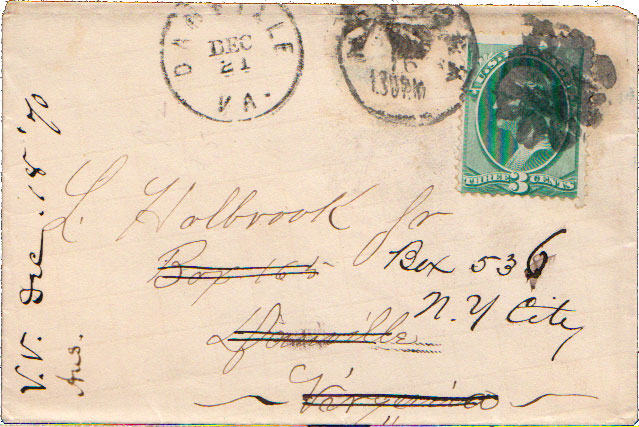 DANVILLE
DEC
21
VA.
16
1.30 PM
THREE 3 CENTS
L. Holbrook Jr
Box 165
Box 536
Danville
N.Y City
Virginia
V.V. Dec. 18 '70
Ans.